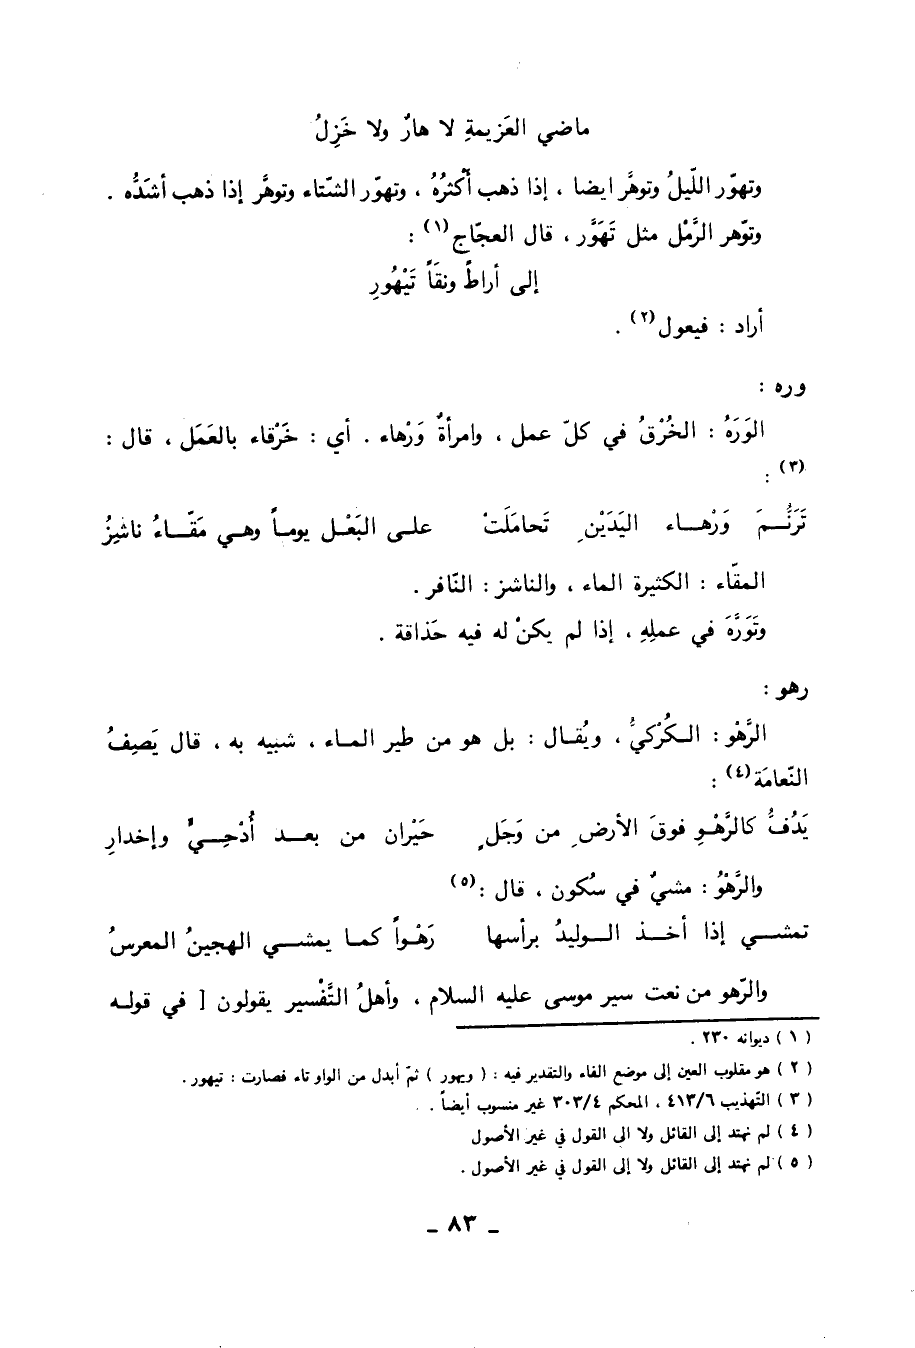 ماضي العَزيمةِ لا هارٌ ولا خَزِلُ
وتهوّر اللّيلُ وتوهَّر ايضا ، إذا ذهب أكْثرُهُ ، وتهوّر الشّتاء وتوهَّر إذا ذهب أشَدُّه .
وتوّهر الرَّمْل مثل تَهَوَّر ، قال العجّاج(١) :
إلى أراطٍ ونقَاً تَيْهُورِ
أراد : فيعول(٢) .
وره :
الوَرَهُ : الخُرْقُ في كلّ عمل ، وامرأةٌ وَرْهاء . أي : خَرْقاء بالعَمَل ، قال :
(٣) :
تَرَنُّــمَ وَرْهــاء اليَدَيْنِ تَحامَلَتْ علــى البَعْــل يومــاً وهــي مَقّــاءُ ناشِزُ
المقّاء : الكثيرة الماء ، والناشز : النّافر .
وتَوَرَّهَ في عملِهِ ، إذا لم يكنْ له فيه حَذاقة .
رهو :
الرَّهْو : الــكُرْكيُّ ، ويُقــال : بل هو من طير المــاء ، شبيه به ، قال يَصِفُ
النّعامَة(٤) :
يَدُفُّ كالرَّهْــوِ فوقَ الأرضِ من وَجَلٍ حَيْران من بعــد أُدْحِــيٍّ وإخدارِ
والرَّهْوُ : مشيٌ في سُكون ، قال :(٥)
تمشــي إذا أخــذ الــوليدُ برأسها رَهْــواً كمــا يمشــي الهجينُ المعرسُ
والرّهو من نعت سير موسى عليه السلام ، وأهلُ التَّفْسير يقولون [ في قولــه
( ١ ) ديوانه ٢٣٠ .
( ٢ ) هو مقلوب العين إلى موضع الفاء والتقدير فيه : ( ويهور ) ثمّ أبدل من الواو تاء فصارت : تيهور .
( ٣ ) التّهذيب ٤١٣/٦ ، المحكم ٣٠٣/٤ غير منسوب أيضاً .
( ٤ ) لم نهتد إلى القائل ولا الى القول في غير الأصول
( ٥ ) لم نهتد إلى القائل ولا إلى القول في غير الأصول .
ـ ٨٣ ـ